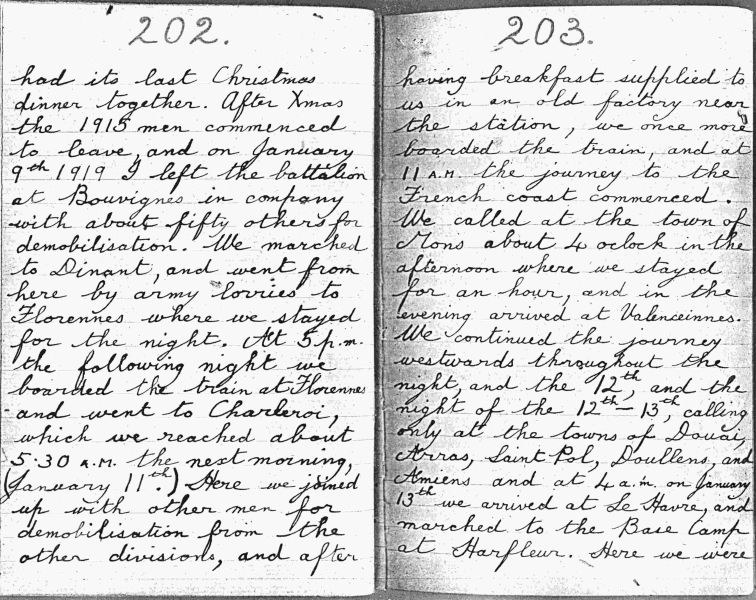 202.
had its last Christmas
dinner together. After Xmas
the 1915 men commenced
to leave, and on January
9th 1919 I left the battalion
at Bouvignes in company
with about fifty others for
demobilisation. We marched
to Dinant, and went from
here by army lorries to
Florennes where we stayed
for the night. At 5 p.m.
the following night we
boarded the train at Florennes
and went to Charleroi,
which we reached about
5·30 A.M. the next morning,
(January 11th.) Here we joined
up with other men for
demobilisation from the
other divisions, and after
203.
having breakfast supplied to
us in an old factory near
the station, we once more
boarded the train, and at
11 A.M. the journey to the
French coast commenced.
We called at the town of
Mons about 4 oclock in the
afternoon where we stayed
for an hour, and in the
evening arrived at Valenceinnes.
We continued the journey
westwards throughout the
night, and the 12th, and the
night of the 12th - 13th, calling
only at the towns of Douai,
Arras, Saint Pol, Doullens, and
Amiens and at 4 a.m. on January
13th we arrived at Le Havre, and
marched to the Base Camp
at Harfleur. Here we were